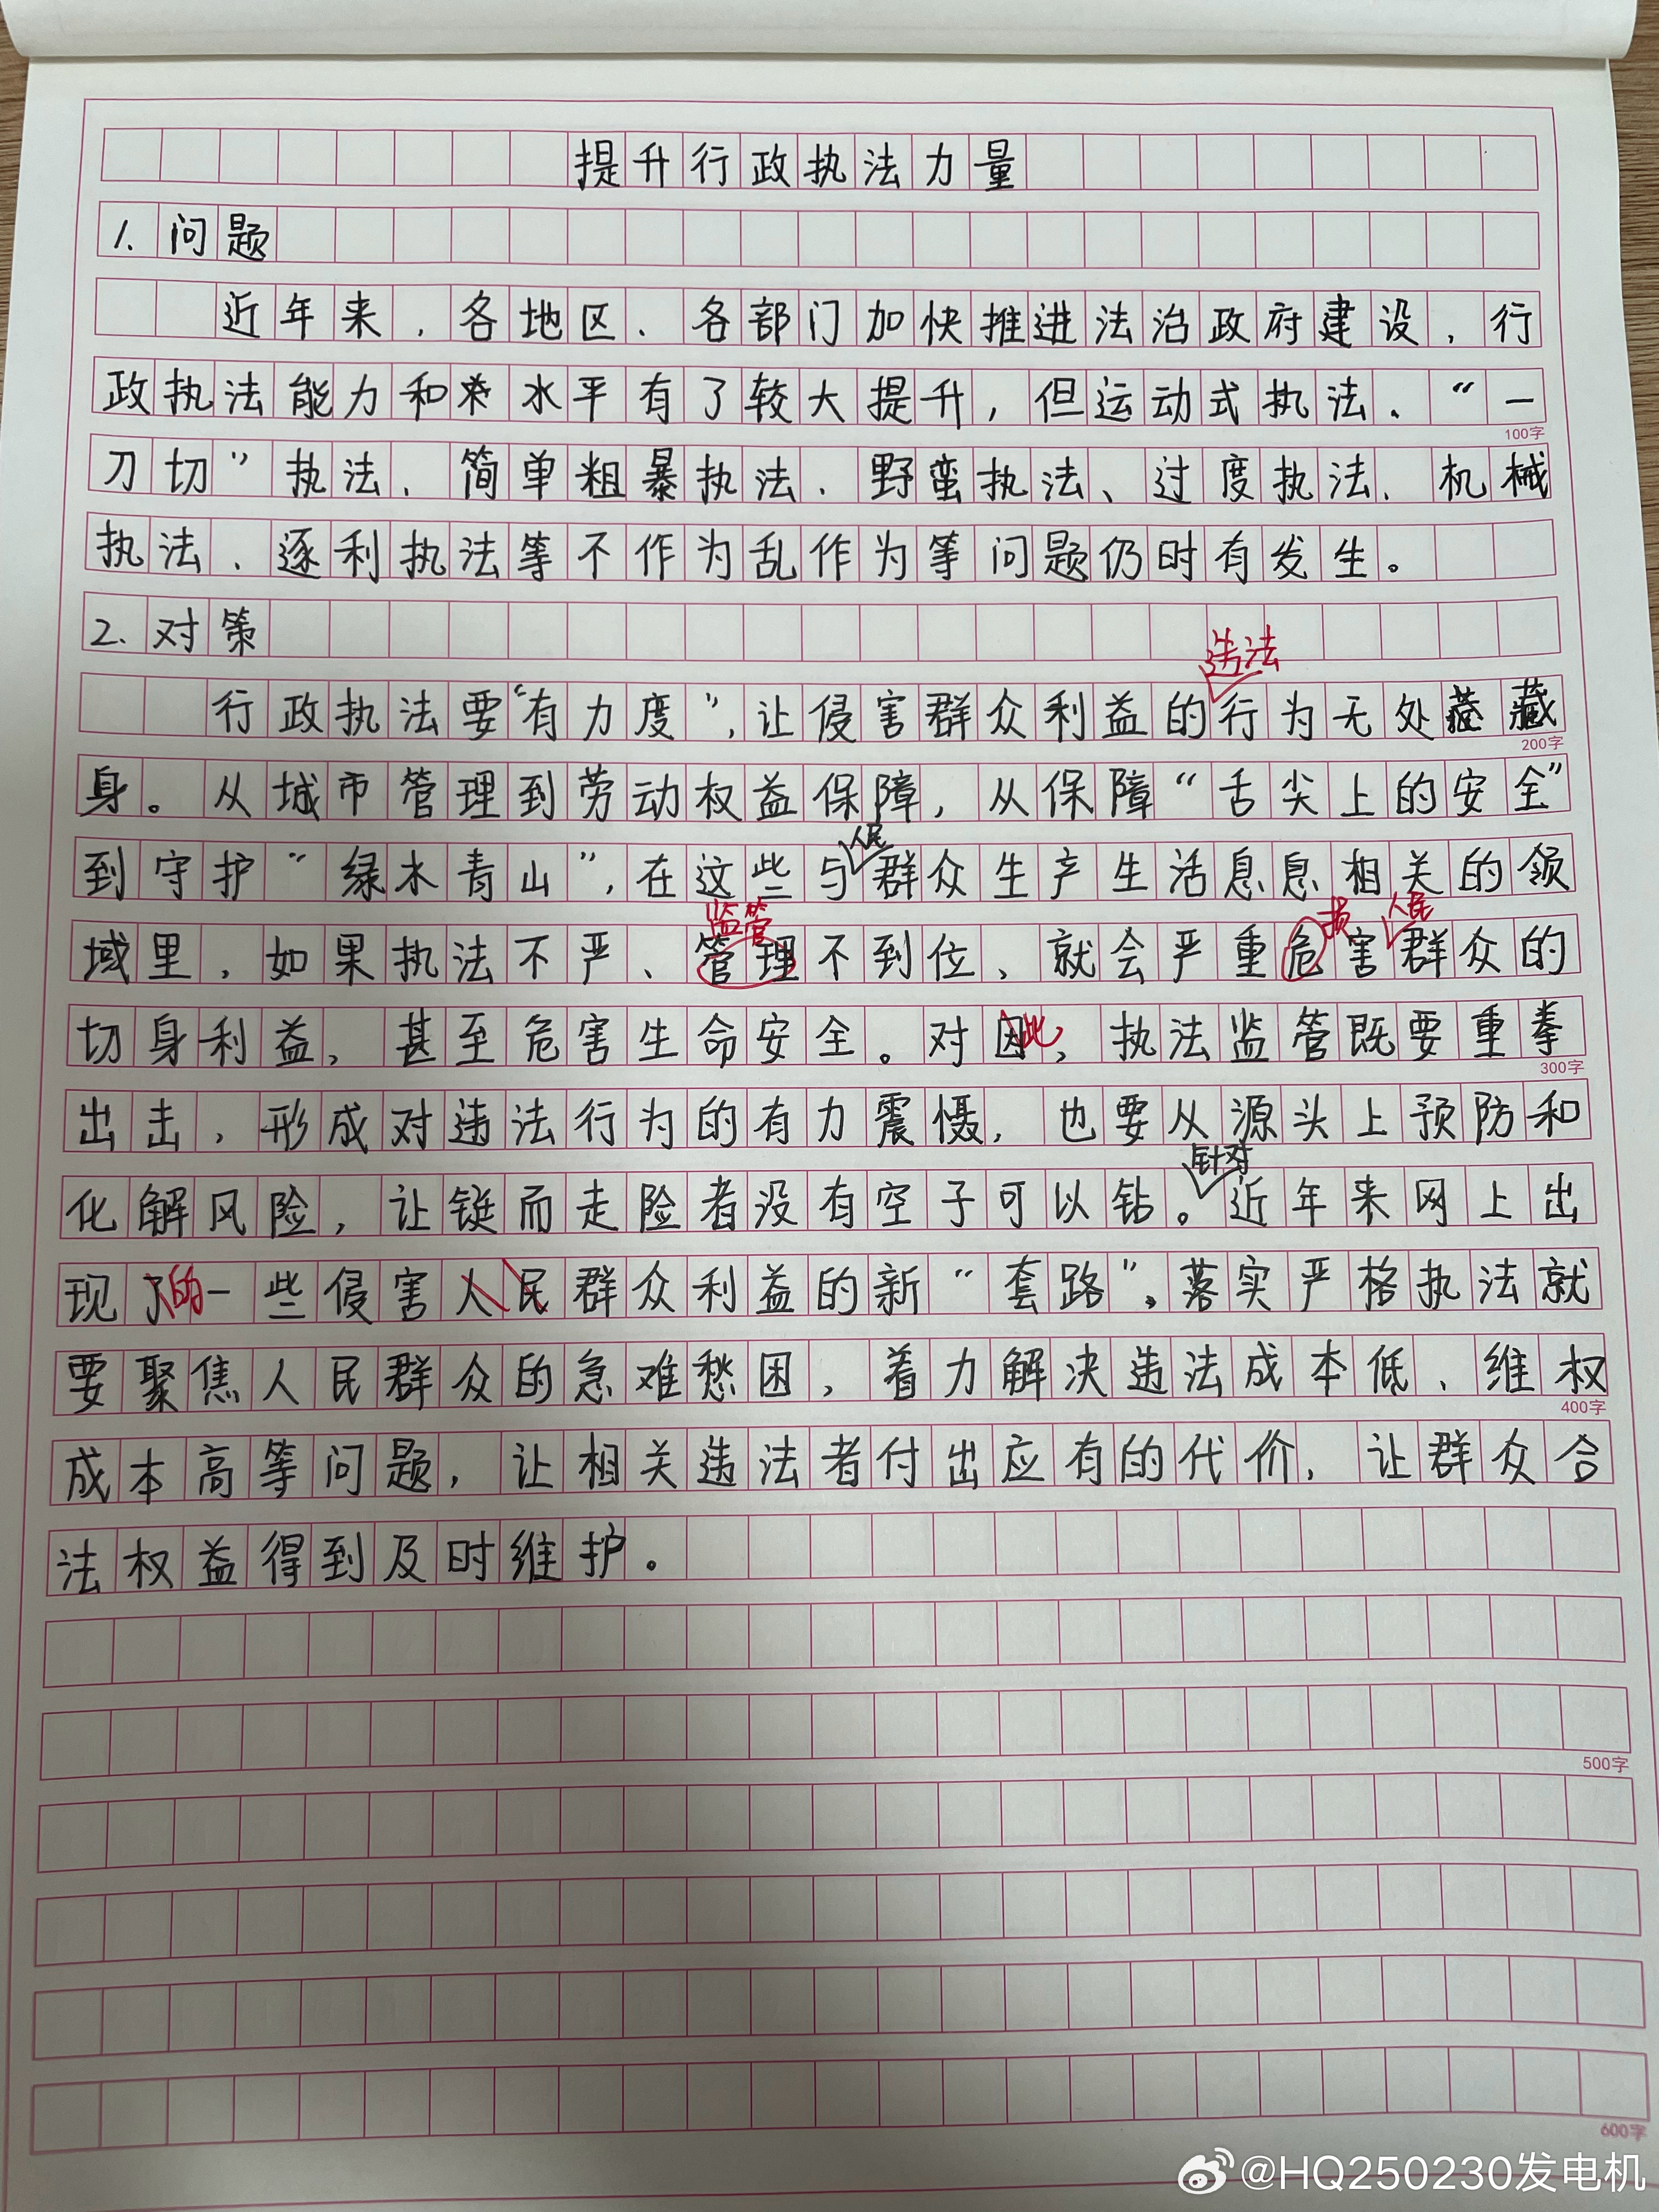 提升行政执法力量
1.问题
近年来，各地区、各部门加快推进法治政府建设，行
政执法能力和水平有了较大提升，但运动式执法、“一
100字
刀切”执法、简单粗暴执法、野蛮执法、过度执法、机械
执法、逐利执法等不作为乱作为等问题仍时有发生。
2.对策
违法
行政执法要“有力度”，让侵害群众利益的行为无处藏
200字
身。从城市管理到劳动权益保障，从保障“舌尖上的安全”
人民
到守护“绿水青山”，在这些与群众生产生活息息相关的领
监管 损 人民
域里，如果执法不严、管理不到位、就会严重危害群众的
切身利益，甚至危害生命安全。对因此，执法监管既要重拳
300字
出击，形成对违法行为的有力震慑，也要从源头上预防和
针对
化解风险，让铤而走险者没有空子可以钻。近年来网上出
现了的一些侵害人民群众利益的新“套路”。落实严格执法就
要聚焦人民群众的急难愁困，着力解决违法成本低、维权
400字
成本高等问题，让相关违法者付出应有的代价，让群众合
法权益得到及时维护。
500字
600字
@HQ250230发电机